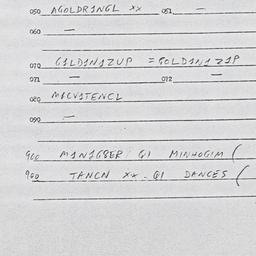 050 AGOLDR1NGL xx 051 —
060 —
070 G1LD1N1ZUP = GOLD1N1Z1P
071 — 072 —
080 M1CV1TENCL
090 —
900 M1N1GBER: Q1 MINHOGIM (
900 TANCN xx. Q1 DANCES (